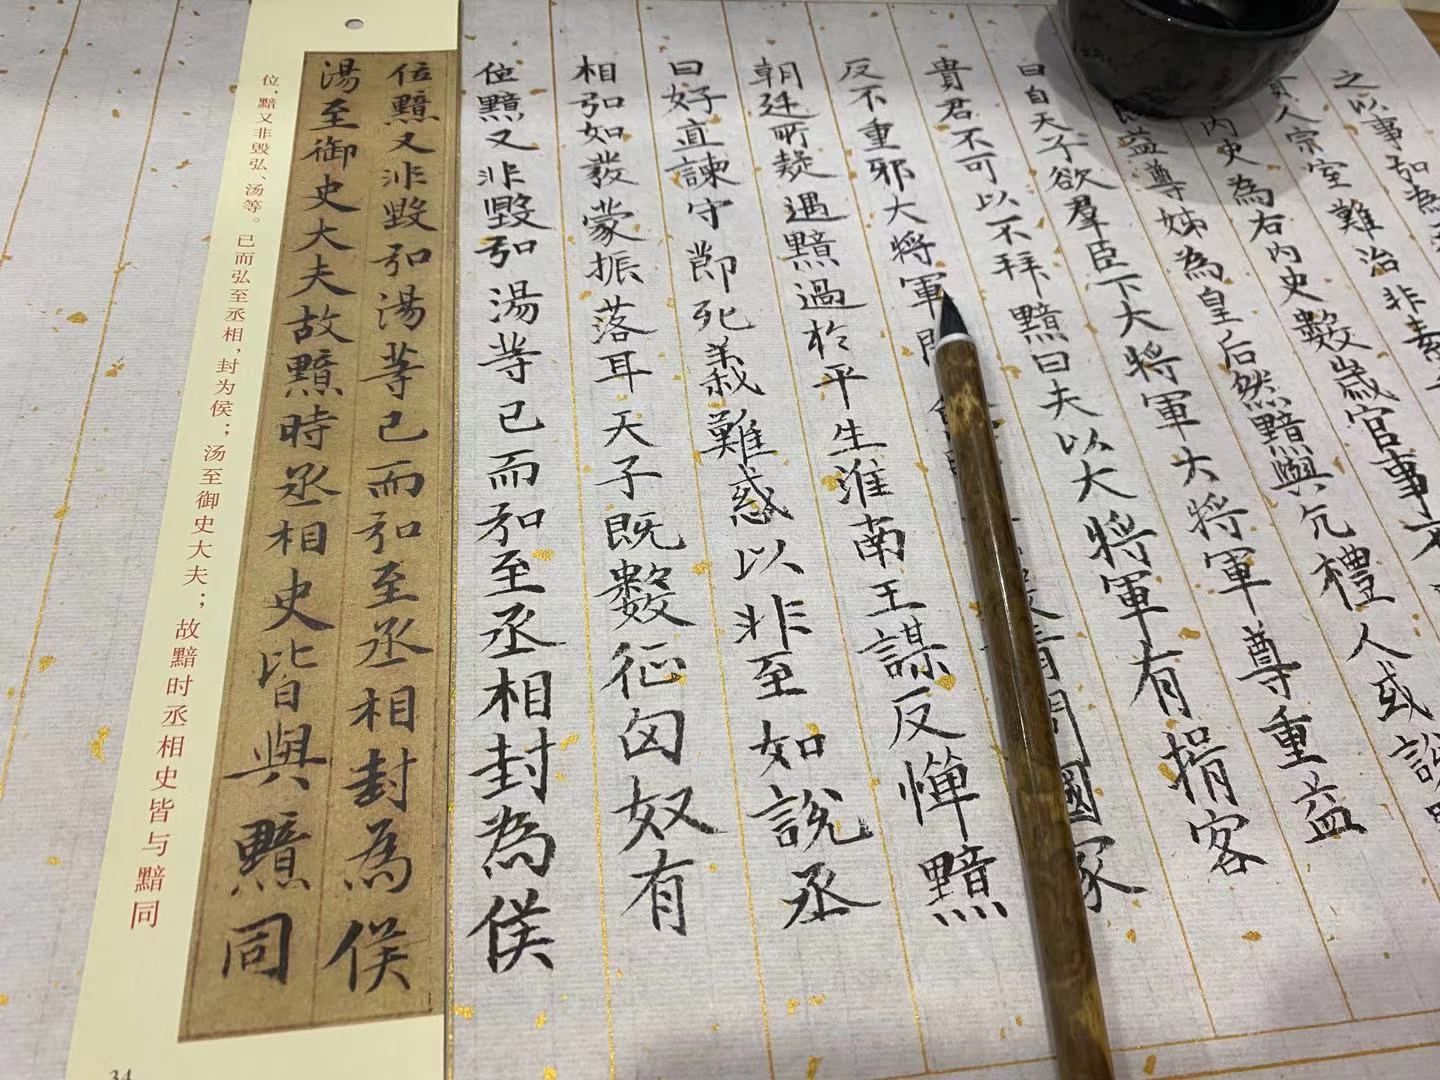 之以事弘為
人宗室難治非素
內史為右內史數歲官事不
益尊姊為皇后然黯與亢禮人或說
曰自天子欲羣臣下大將軍大將軍尊重益
貴君不可以不拜黯曰夫以大將軍有揖客
反不重邪大將軍聞請問國家
朝廷所疑遇黯過於平生淮南王謀反憚黯
曰好直諫守節死義難惑以非至如說丞
相弘如發蒙振落耳天子既數征匈奴有
位黯又非毀弘湯等已而弘至丞相封為侯
位黯又非毀弘湯等已而弘至丞相封為侯
湯至御史大夫故黯時丞相史皆與黯同
位，黯又非毁弘、汤等。已而弘至丞相，封为侯；汤至御史大夫；故黯时丞相史皆与黯同
34